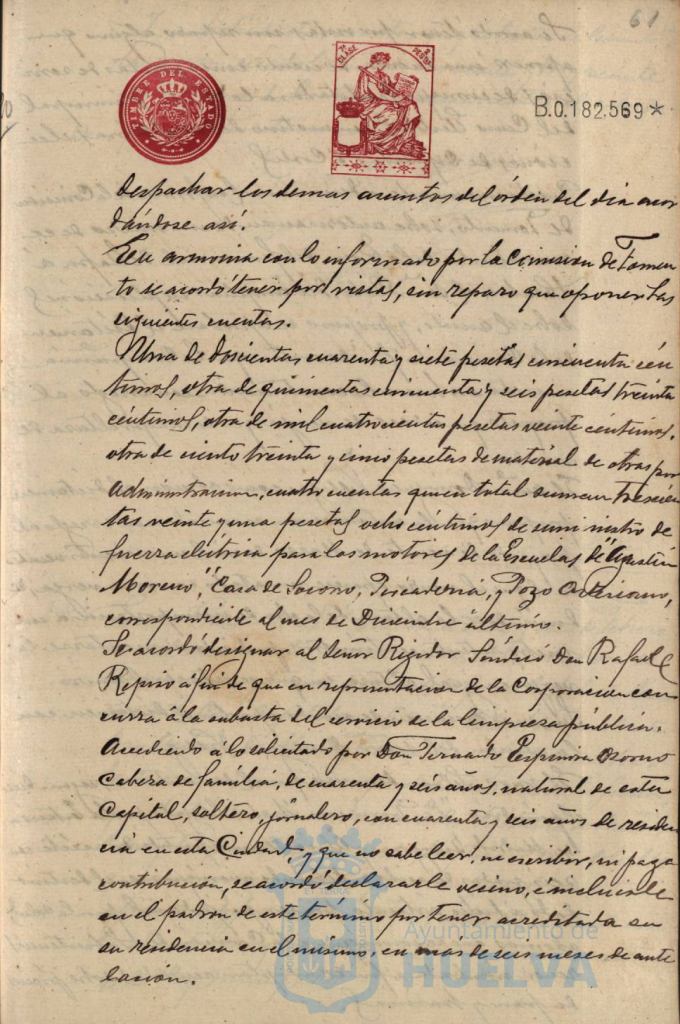 61
TIMBRE DEL ESTADO
7ª CLASE PESETAS
B.0.182.569*
despachar los demas asuntos del órden del dia acor
dándose así.
En armonia con lo informado por la Comision de Fomen
to se acordó tener por vistas, sin reparo que oponer las
siguientes cuentas.
Una de doscientas cuarenta y siete pesetas cincuenta cén
timos, otra de quinientas cincuenta y seis pesetas treinta
céntimos, otra de mil cuatrocientas pesetas veinte céntimos,
otra de ciento treinta y cinco pesetas de material de obras por
administracion, cuatro cuentas que en total suman trescien
tas veinte y una pesetas ocho céntimos de suministro de
fuerza eléctrica para los motores de la Escuelas de "Agustin
Moreno", Casa de Socorro, Pescaderia, y Pozo Artesiano,
correspondiente al mes de Diciembre último.
Se acordó designar al Señor Regidor Síndico Don Rafael
Repiso á fin de que en representacion de la Corporacion con
curra á la subasta del servicio de la limpieza pública.
Accediendo á lo solicitado por Don Fernando Espinosa Osorno
cabeza de família, de cuarenta y seis años, natural de esta
Capital, soltero, jornalero, con cuarenta y seis años de residen
cia en esta Ciudad, y que no sabe leer, ni escribir, ni paga
contribución, se acordó declararle vecino, é incluirle
en el padron de este término por tener acreditada su
su residencia en el mismo, en más de seis meses de ante
lacion.
Ayuntamiento de
HUELVA